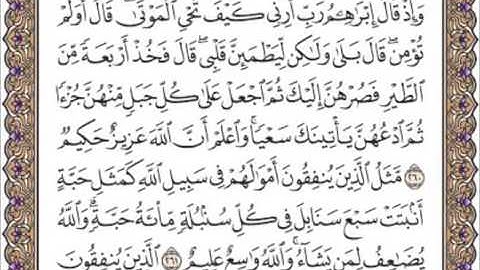 وَإِذْ قَالَ إِبْرَٰهِـۧمُ رَبِّ أَرِنِى كَيْفَ تُحْىِ ٱلْمَوْتَىٰ ۖ قَالَ أَوَلَمْ
تُؤْمِن ۖ قَالَ بَلَىٰ وَلَٰكِن لِّيَطْمَئِنَّ قَلْبِى ۖ قَالَ فَخُذْ أَرْبَعَةً مِّنَ
ٱلطَّيْرِ فَصُرْهُنَّ إِلَيْكَ ثُمَّ ٱجْعَلْ عَلَىٰ كُلِّ جَبَلٍ مِّنْهُنَّ جُزْءًا
ثُمَّ ٱدْعُهُنَّ يَأْتِينَكَ سَعْيًا ۚ وَٱعْلَمْ أَنَّ ٱللَّهَ عَزِيزٌ حَكِيمٌ
٢٦٠ مَّثَلُ ٱلَّذِينَ يُنفِقُونَ أَمْوَٰلَهُمْ فِى سَبِيلِ ٱللَّهِ كَمَثَلِ حَبَّةٍ
أَنۢبَتَتْ سَبْعَ سَنَابِلَ فِى كُلِّ سُنۢبُلَةٍ مِّا۟ئَةُ حَبَّةٍ ۗ وَٱللَّهُ
يُضَٰعِفُ لِمَن يَشَآءُ ۗ وَٱللَّهُ وَٰسِعٌ عَلِيمٌ ٢٦١ ٱلَّذِينَ يُنفِقُونَ